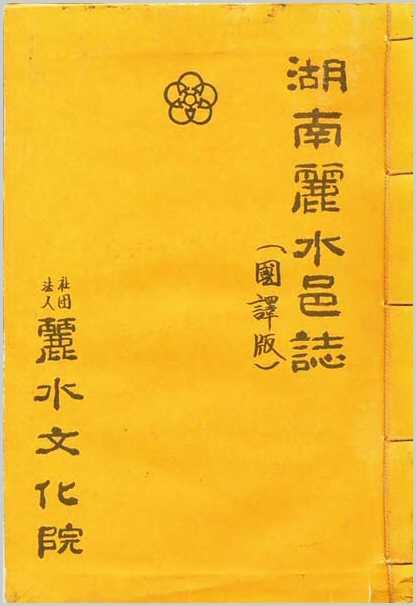 湖南麗水邑誌
(國譯版)
社団
法人
麗水文化院